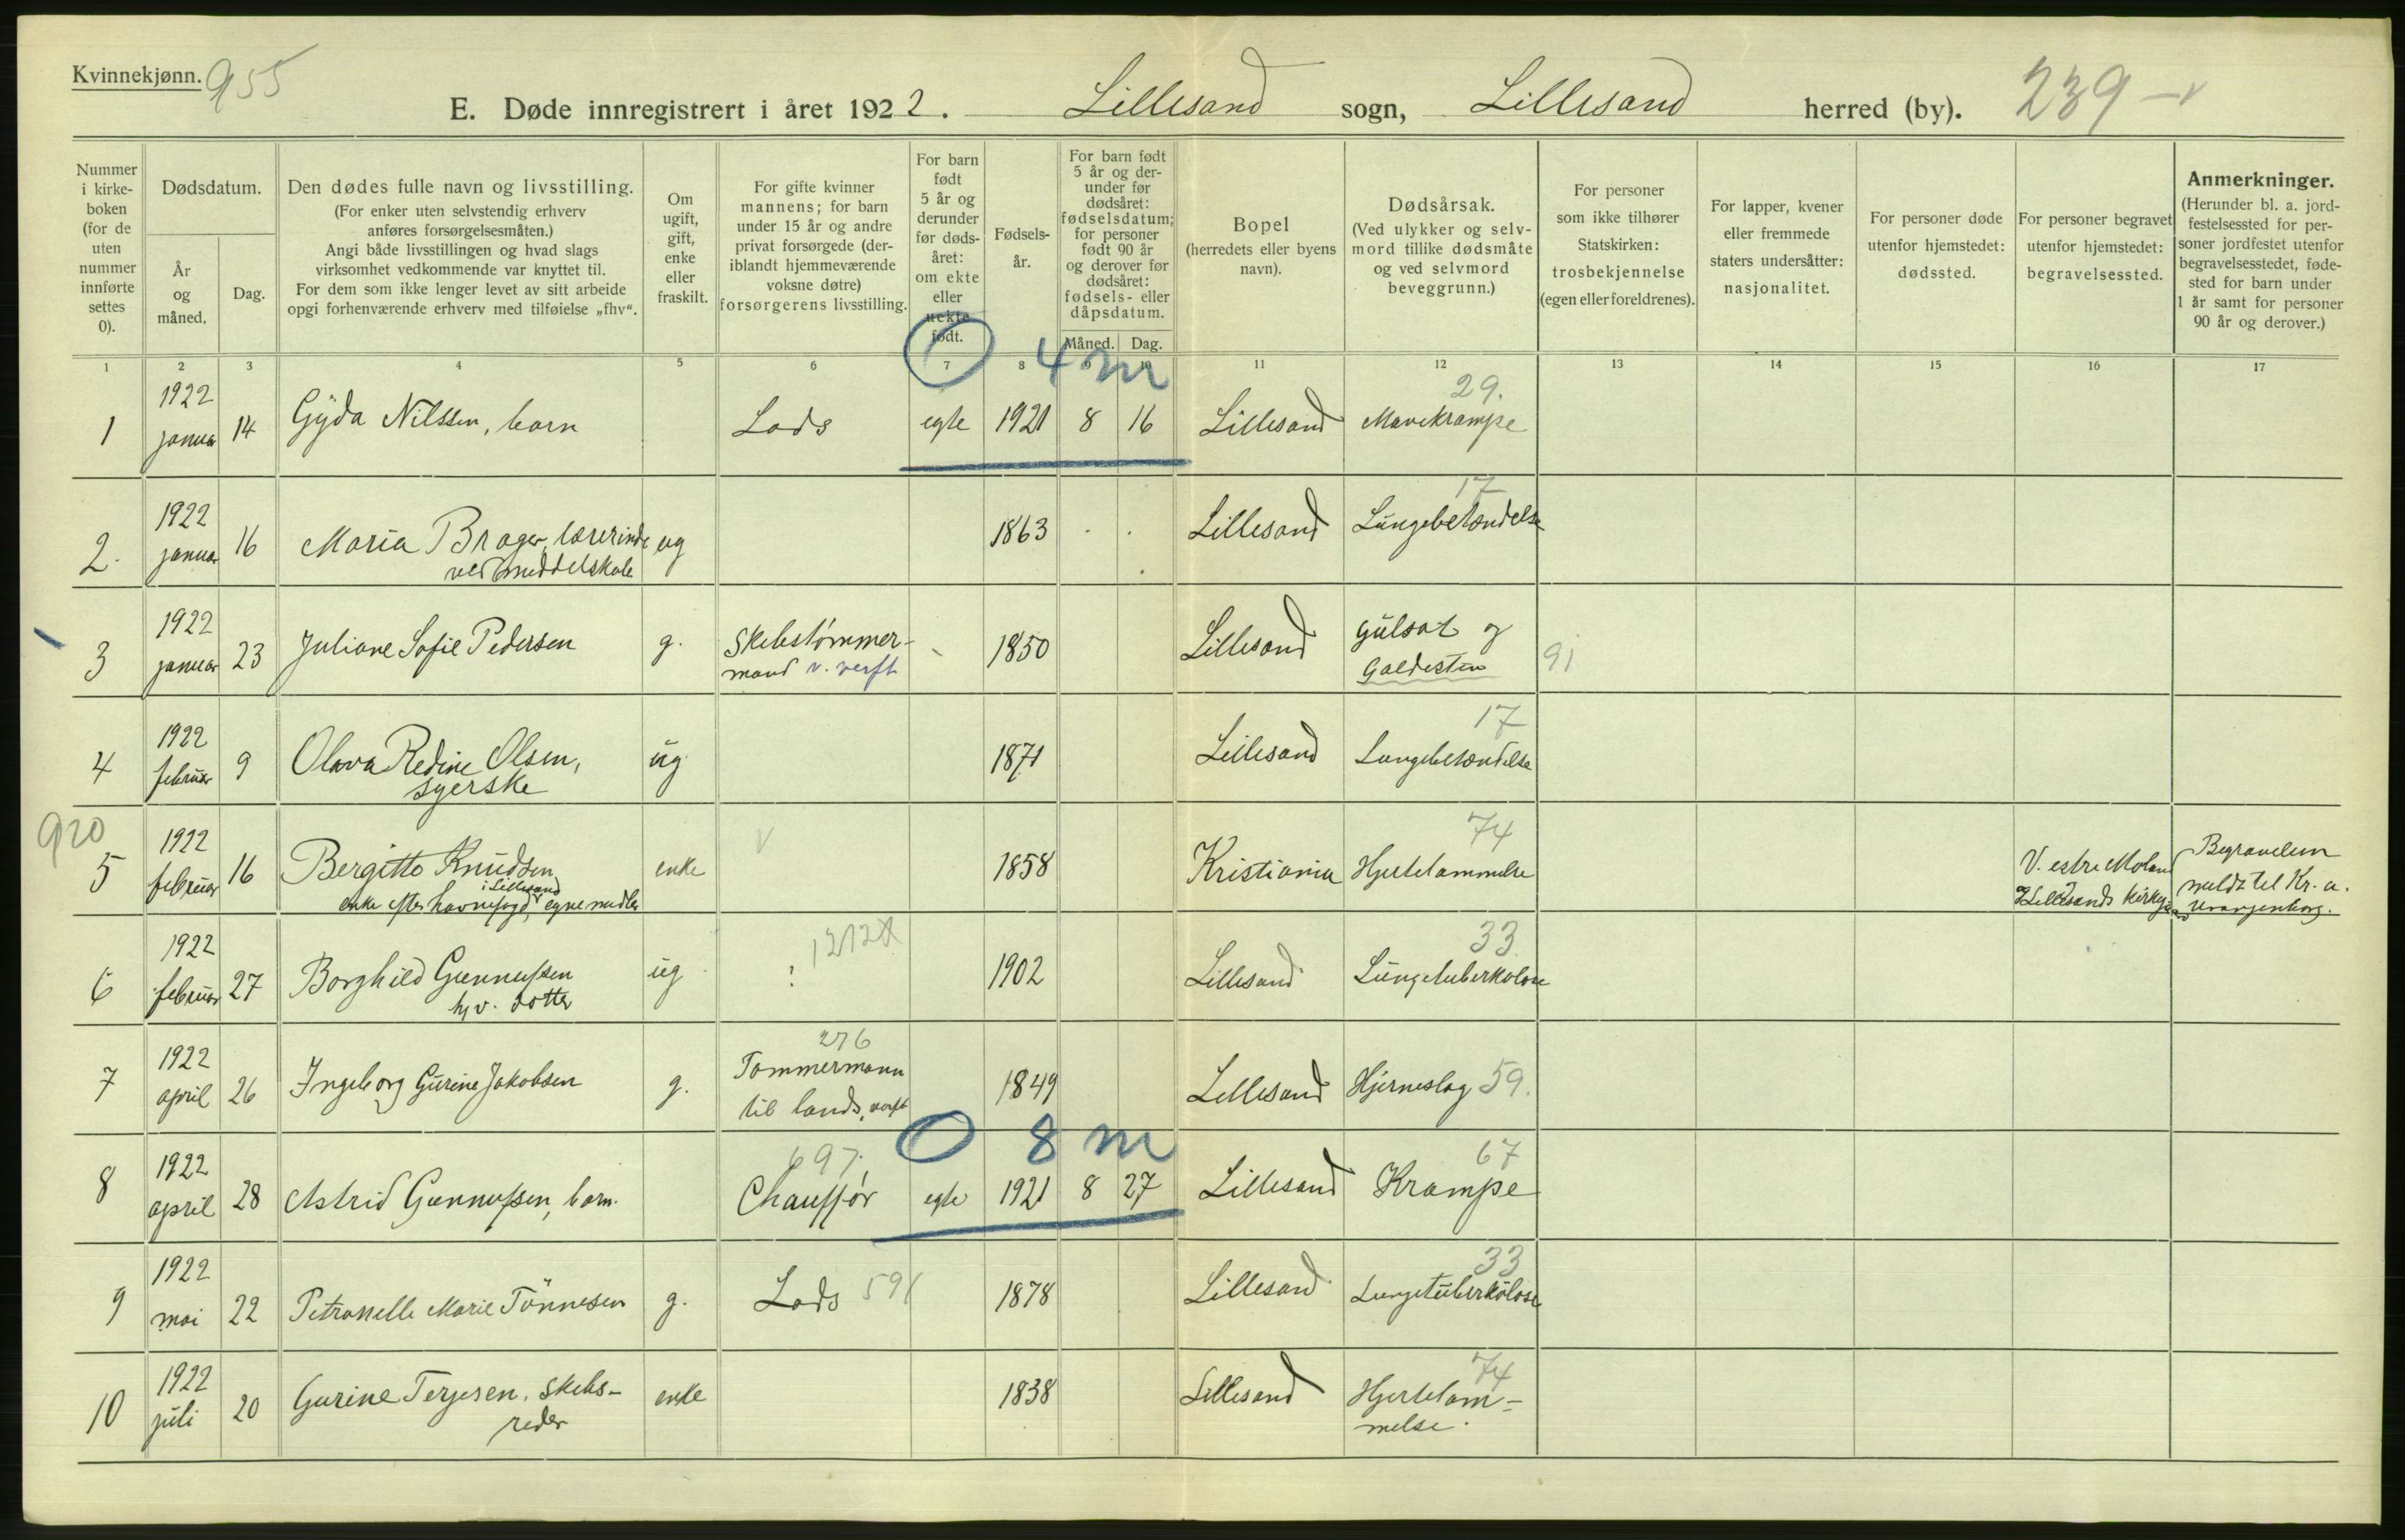 Kvinnekjønn. 955
E. Døde innregistrert i året 1922. Lillesand sogn, Lillesand herred (by). 239
Nummer i kirke- boken (for de uten nummer innførte settes 0).
Dødsdatum.
År og måned.
Dag.
Den dødes fulle navn og livsstilling.
(For enker uten selvstendig erhverv
anføres forsørgelsesmåten.)
Angi både livsstillingen og hvad slags
virksomhet vedkommende var knyttet til.
For dem som ikke lenger levet av sitt arbeide
opgi forhenværende erhverv med tilføielse „fhv“.
Om
ugift,
gift,
enke
eller
fraskilt.
For gifte kvinner
mannens; for barn
under 15 år og andre
privat forsørgede (der-
iblandt hjemmeværende
voksne døtre)
forsørgerens livsstilling.
For barn
født
5 år og
derunder
før døds-
året:
om ekte
eller
uekte
født.
Fødsels-
år.
For barn født
5 år og der-
under før
dødsåret:
fødselsdatum;
for personer
født 90 år
og derover før
dødsåret:
fødsels- eller
dåpsdatum.
Måned. Dag.
Bopel
(herredets eller byens
navn).
Dødsårsak.
(Ved ulykker og selv-
mord tillike dødsmåte
og ved selvmord
beveggrunn.)
For personer
som ikke tilhører
Statskirken:
trosbekjennelse
(egen eller foreldrenes).
For lapper, kvener
eller fremmede
staters undersåtter:
nasjonalitet.
For personer døde
utenfor hjemstedet:
dødssted.
For personer begravet
utenfor hjemstedet:
begravelsessted.
Anmerkninger.
(Herunder bl. a. jord-
festelsessted for per-
soner jordfestet utenfor
begravelsesstedet, føde-
sted for barn under
1 år samt for personer
90 år og derover.)
1 2 3 4 5 6 7 8 9 10 11 12 13 14 15 16 17
4 m
29.
1 1922 januar 14 Gyda Nilssen, barn Lods egte 1921 8 16 Lillesand Mavekrampe
17
2. 1922 januar 16 Maria Brager, lærerinde ug 1863 Lillesand Lungebetændelse
ved middelskole
3 1922 januar 23 Juliane Sofie Pedersen g. Skibstømmer- 1850 Lillesand Gulsot og 91
mand v. verft Galdesten
17
4 1922 februar 9 Olava Redine Olsen, ug 1871 Lillesand Lungebetændelse
syerske
920
74
5 1922 februar 16 Bergitte Knudsen enke 1858 Kristiania Hjertelammelse V. estre Moland Begravelsen
i Lillesand
enke efter havnefogd, egne midler Lillesands kirkeg meldt til Kr. a.
Uranienborg.
33
6 1922 februar 27 Borghild Gunnufsen ug ? 1902 Lillesand Lungetuberkolose
hjv. dotter
276
7 1922 april 26 Ingeborg Gurine Jakobsen g. Tømmermann 1849 Lillesand Hjerneslag 59.
til lands, verft
8 m
697. 67
8 1922 april 28 Astrid Gunnufsen, barn. Chauffør egte 1921 8 27 Lillesand Krampe
33
9 1922 mai 22 Petronelle Marie Tönnesen g. Lods 591 1878 Lillesand Lungetuberkolose
74
10 1922 juli 20 Gurine Terjesen, skibs- enke 1838 Lillesand Hjertelam-
reder melse.